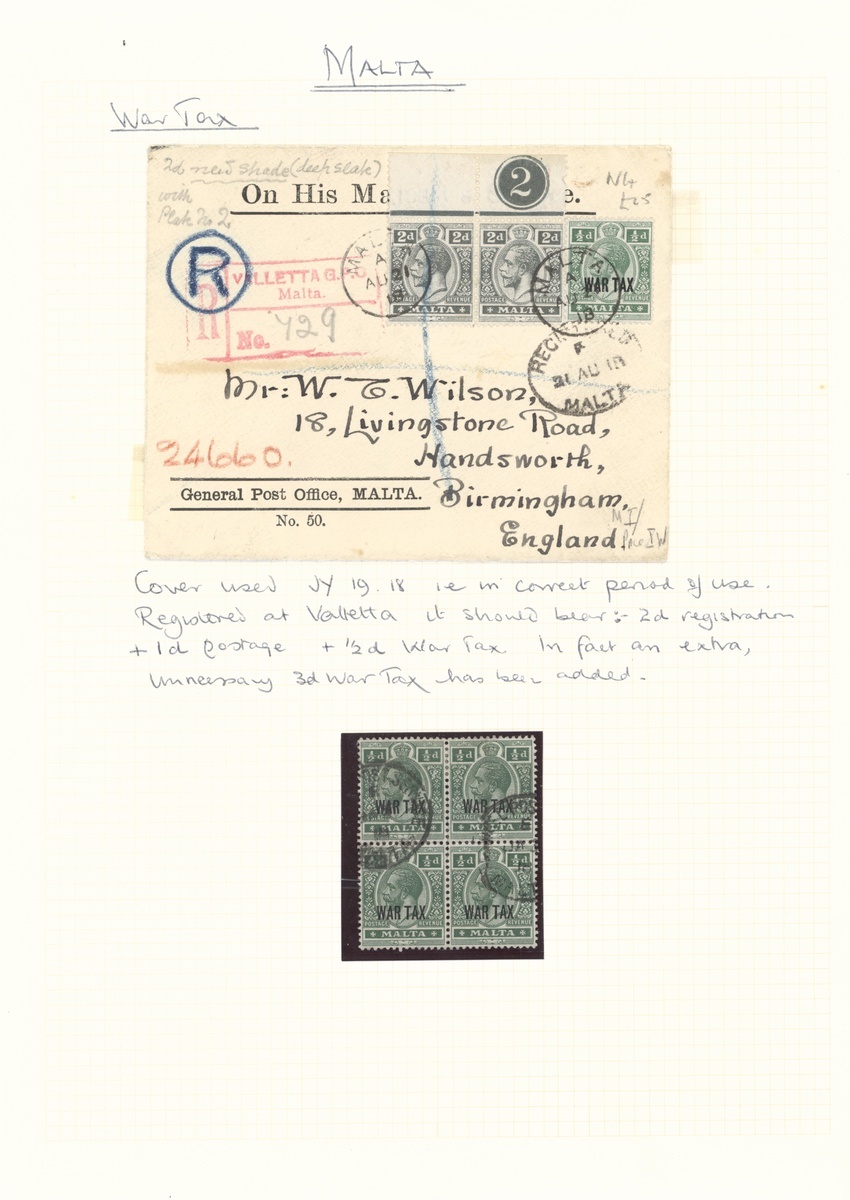 MALTA
War Tax
2d new shade (deep slate)
with
Plate No 2
On His Ma e.
2
N4
£25
R
R
VALLETTA G.
Malta.
No. 429
MALTA
A
AU 21
18
2d 2d
POSTAGE REVENUE
MALTA
2d 2d
POSTAGE REVENUE
MALTA
½d ½d
WAR TAX
POSTAGE REVENUE
MALTA
MALTA
A
AU 2
18
REGISTERED
F
21 AU 18
MALTA
Mr: W. T. Wilson,
18, Livingstone Road,
Handsworth,
Birmingham,
England
24660.
General Post Office, MALTA.
No. 50.
Cover used JY 19. 18 i.e in correct period of use.
Registered at Valletta it should bear:- 2d registration
+ 1d postage + ½d War Tax In fact an extra,
unnecessary 3d War Tax has been added.
½d ½d
WAR TAX
POSTAGE REVENUE
MALTA
½d ½d
WAR TAX
POSTAGE REVENUE
MALTA
½d ½d
WAR TAX
POSTAGE REVENUE
MALTA
½d ½d
WAR TAX
POSTAGE REVENUE
MALTA